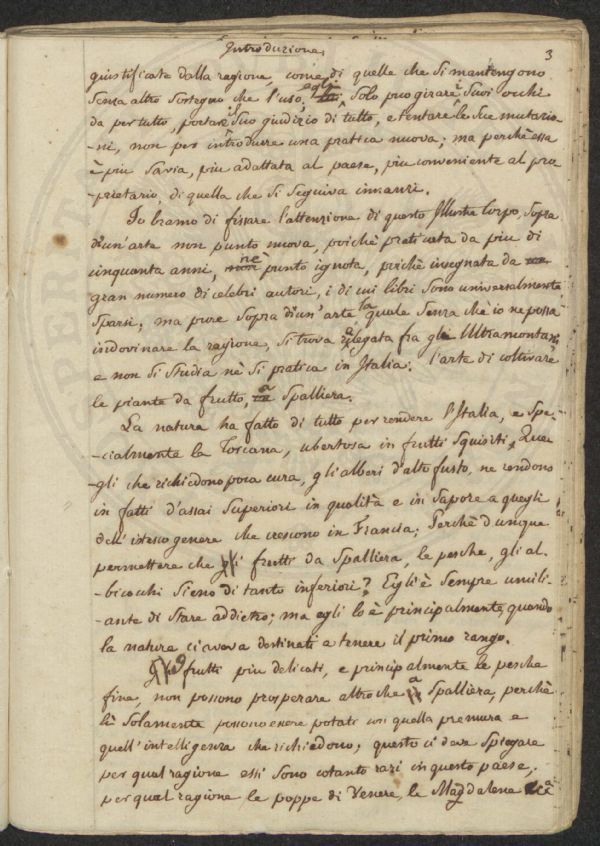 Introduzione.
3
giustificate dalla ragione, come di quelle che si mantengono
senza altro sostegno che l'uso; egli solo può girare i suoi occhi
da per tutto, portare il suo giudizio di tutto, e tentare le sue mutazio-
-ni, non per introdurre una pratica nuova; ma perchè essa
è piu savia, piu adattata al paese, piu conveniente al pro-
-prietario, di quella che si seguiva innanzi.
Io bramo di fissare l'attenzione di questo Illustre Corpo, sopra
di un'arte non punto nuova, poichè praticata da piu di
cinquanta anni, nè punto ignota, poichè insegnata da
gran numero di celebri autori, i di cui libri sono universalmente
sparsi; ma pure sopra di un'arte la quale senza che io ne possa
indovinare la ragione, si trova rilegata fra gli Ultramontani,
e non si studia nè si pratica in Italia: l'arte di coltivare
le piante da frutto, a Spalliera.
La natura ha fatto di tutto per rendere l'Italia, e spe-
-cialmente la Toscana, ubertosa in frutti squisiti. Que-
-gli che richiedono poca cura, gli alberi d'alto fusto, ne rendono
in fatti d'assai superiori in qualità e in sapore a quegli
dell'istesso genere che crescono in Francia; Perchè dunque
permettere che i frutti da Spalliera, le pesche, gli al-
-bicocchi sieno di tanto inferiori? Egli è sempre umili-
-ante di stare addietro; ma egli lo è principalmente, quando
la natura ci aveva destinati a tenere il primo rango.
I frutti piu delicati, e principalmente le pesche
fine, non possono prosperare altro che a Spalliera, perchè
lì solamente possono essere potati con quella premura e
quell'intelligenza che richiedono; questo ci deve spiegare
per qual ragione essi sono cotanto rari in questo paese,
per qual ragione le poppe di Venere, le Magdalene